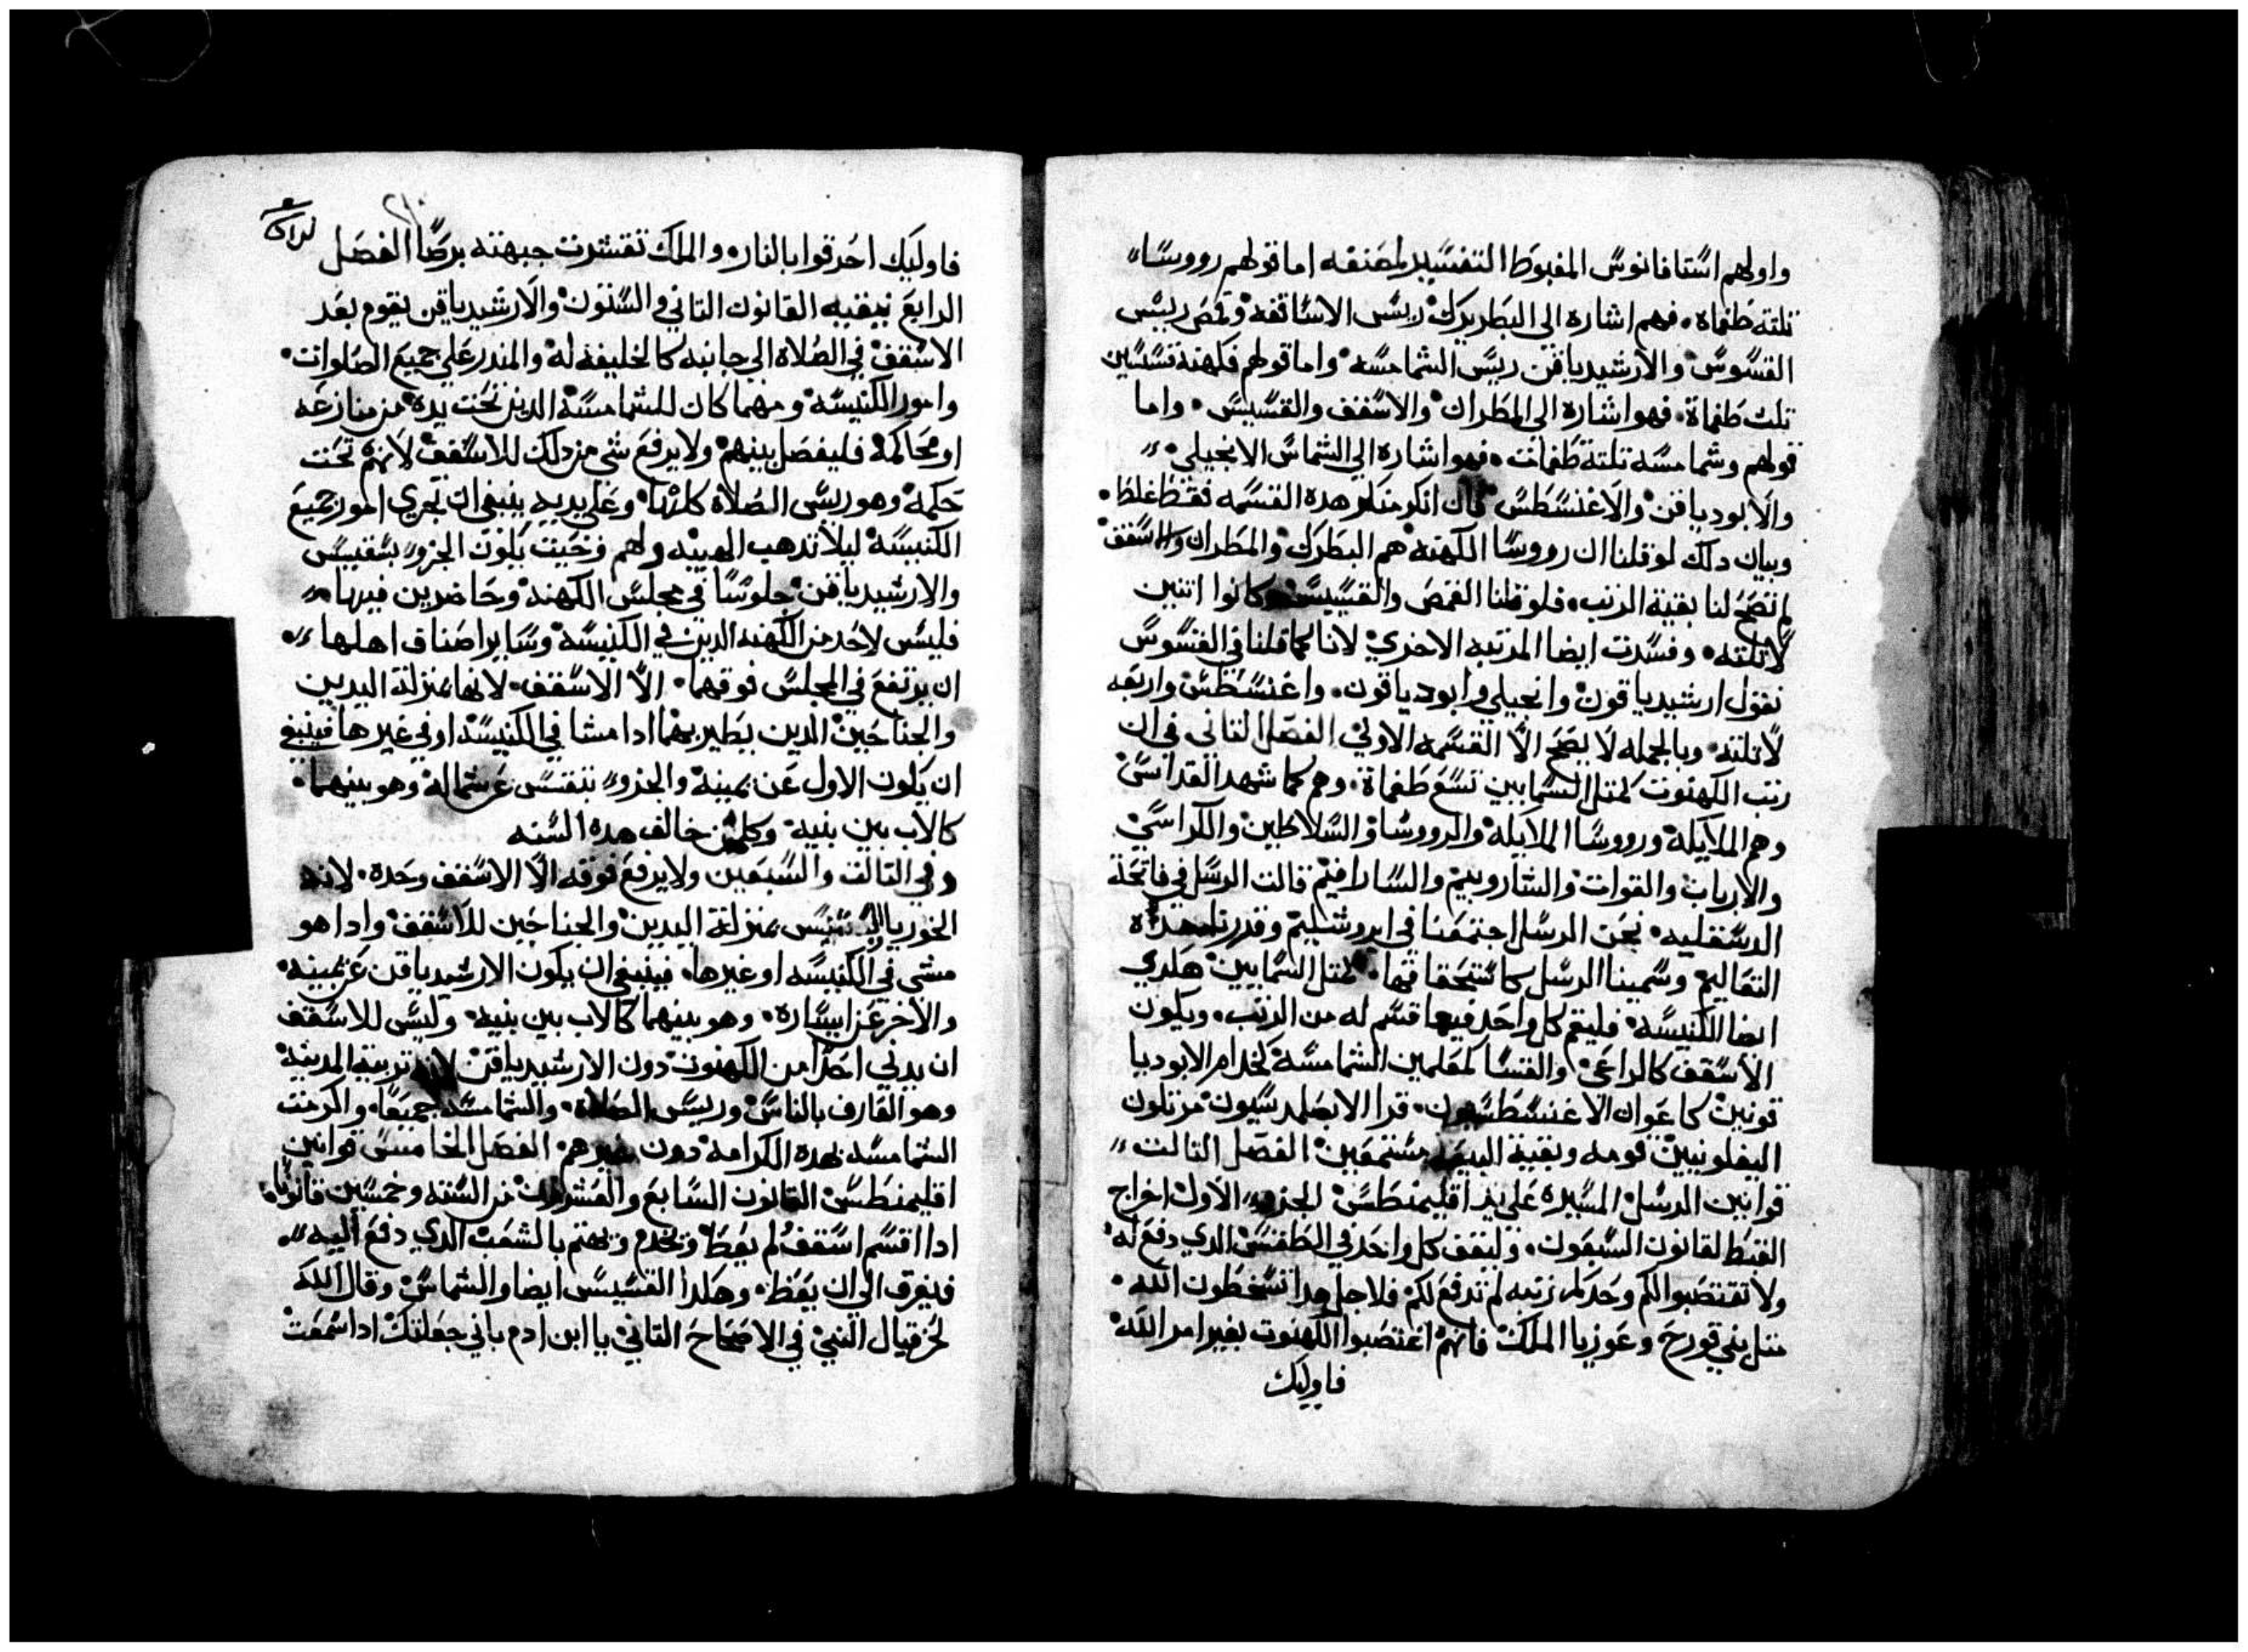 واولهم استافانوس المغبوط التفسير لمصنفه اما قولهم رووسا
تلته طغماة. فهم اشاره الي البطريرك ريس الاساقفه وقمص رييس
القسوس والارشيدياقن رييس الشمامسه واما قولهم فكهنة قسيسين
تلت طغماة. فهو اشاره الي المطران والاسقف والقسيس. واما
قولهم وشمامسه تلتة طغمات. فهو اشاره الي الشماس الانجيلي
والابودياقن والاغنسطس فان انكر منكر هده القسمه فقط غلط.
وبيان دلك لو قلنا ان رووسا الكهنة هم البطرك والمطران والاسقف
لم تصح لنا بقية الرتب. فلو قلنا القمص والقسيس وكانوا اتنين
لا تلته. وفسدت ايضا المرتبه الاخري لانا كما قلنا في القسوس
نقول ارشيدياقون وانجيلي وابودياقون. واغنسطس واربعه
لا تلته وبالجمله لا يصح الا القسمه الاولي الفصل التاني في ان
رتب الكهنوت كمتل السماييين تسع طغماة. وهم كما شهد القداس
وهم الملايكة ورووسا الملايكة والرووسا والسلاطين والكراسي
والارباب والقوات والشاروبيم والسارافيم قالت الرسل في فاتحة
الدسقليه. نحن الرسل اجتمعنا في ايروشليم وقررنا هده
التعاليم وسمينا الرسل كاستحقاقها. كمتل السماييين هكدي
ايضا الكنيسه فليقم كل واحد فيما قسم له من الرتب. ويكون
الاسقف كالراعي والقسا كمعلمين الشمامسة كخدام الابوديا
قونين كاعوان الاغنسطسيون. قرا الابصلمدسيون مرتلون
البفلونيين قومه وبقية البيعه مستمعين الفصل التالت
قوانين الرسل المسيره علي يد اقليمنطس الجزو الاول اخراج
القبط لقانون السبعون. وليقف كل واحد في الطقس الدي دفع له
ولا تقتضبوا لكم وحدكم رتبه لم تدفع لكم فلاجل هدا تسخطون الله.
متل بني قورح وعوزيا الملك فانهم اغتصبوا الكهنوت بغير امر الله
فاوليك
فاوليك احرقوا بالنار. والملك تقشرت جبهته برصا الفصل
الرابع نيقيه القانون التاني والستون والارشيدياقن يقوم بعد
الاسقف في الصلاة الي جانبه كالخليفة له والمندر علي جميع الصلوات.
وامور الكنيسه ومهما كان للشمامسة الدين تحت يده من منازعه
او محاكمه فليفصل بينهم ولا يرفع شي من دلك للاسقف لانهم تحت
حكمه وهو ريس الصلاة كلها وعلي يديه ينبغي ان تجري امور جميع
الكنيسة ليلا تدهب الهيبه ولهم وحيت يكون الخرو بسقيس
والارشيدياقن جلوسا في مجلس الكهنه وحاضرين فيها
فليس لاحد من الكهنه الدين في الكنيسة وساير اصناف اهلها
ان يرتفع في المجلس فوقهما. الا الاسقف. لانها بمنزلة اليدين
والجناحين الدين يطير بهما ادا مشا في الكنيسة او في غيرها فينبغي
ان يكون الاول عن يمينة والخرو بنقس عن شماله وهو بينهما.
كالاب بين بنيه وكلمن خالف هده السنه
وفي التالت والسبعين ولا يرفع فوقه الا الاسقف وحده. لانه
الخوريا بمنزلة اليدين والجناحين للاسقف وادا هو
مشي في الكنيسه او غيرها. فينبغي ان يكون الارشيدياقن عن يمينه.
والاخر عن ايساره. وهو بينهما كالاب بين بنيه. وليس للاسقف
ان يدني احدا من الكهنوت دون الارشيدياقن لان تربية المدينة
وهو العارف بالناس وريس الصلاة. والشمامسة جميعا. واكرمت
الشمامسه بهده الكرامه دون غيرهم الفصل الخامس قوانين
اقليمنطس القانون السابع والعشرون من السته وخمسين قانونا.
ادا اقسم اسقف لم يعط ويخدم ويهتم بالشعب الدي دفع اليه
فليفرق الي ان يعظ. وهكدا القسيس ايضا والشماس وقال الله
لحزقيال النبي في الاصحاح التاني يا ابن ادم باني جعلتك ادا سمعت